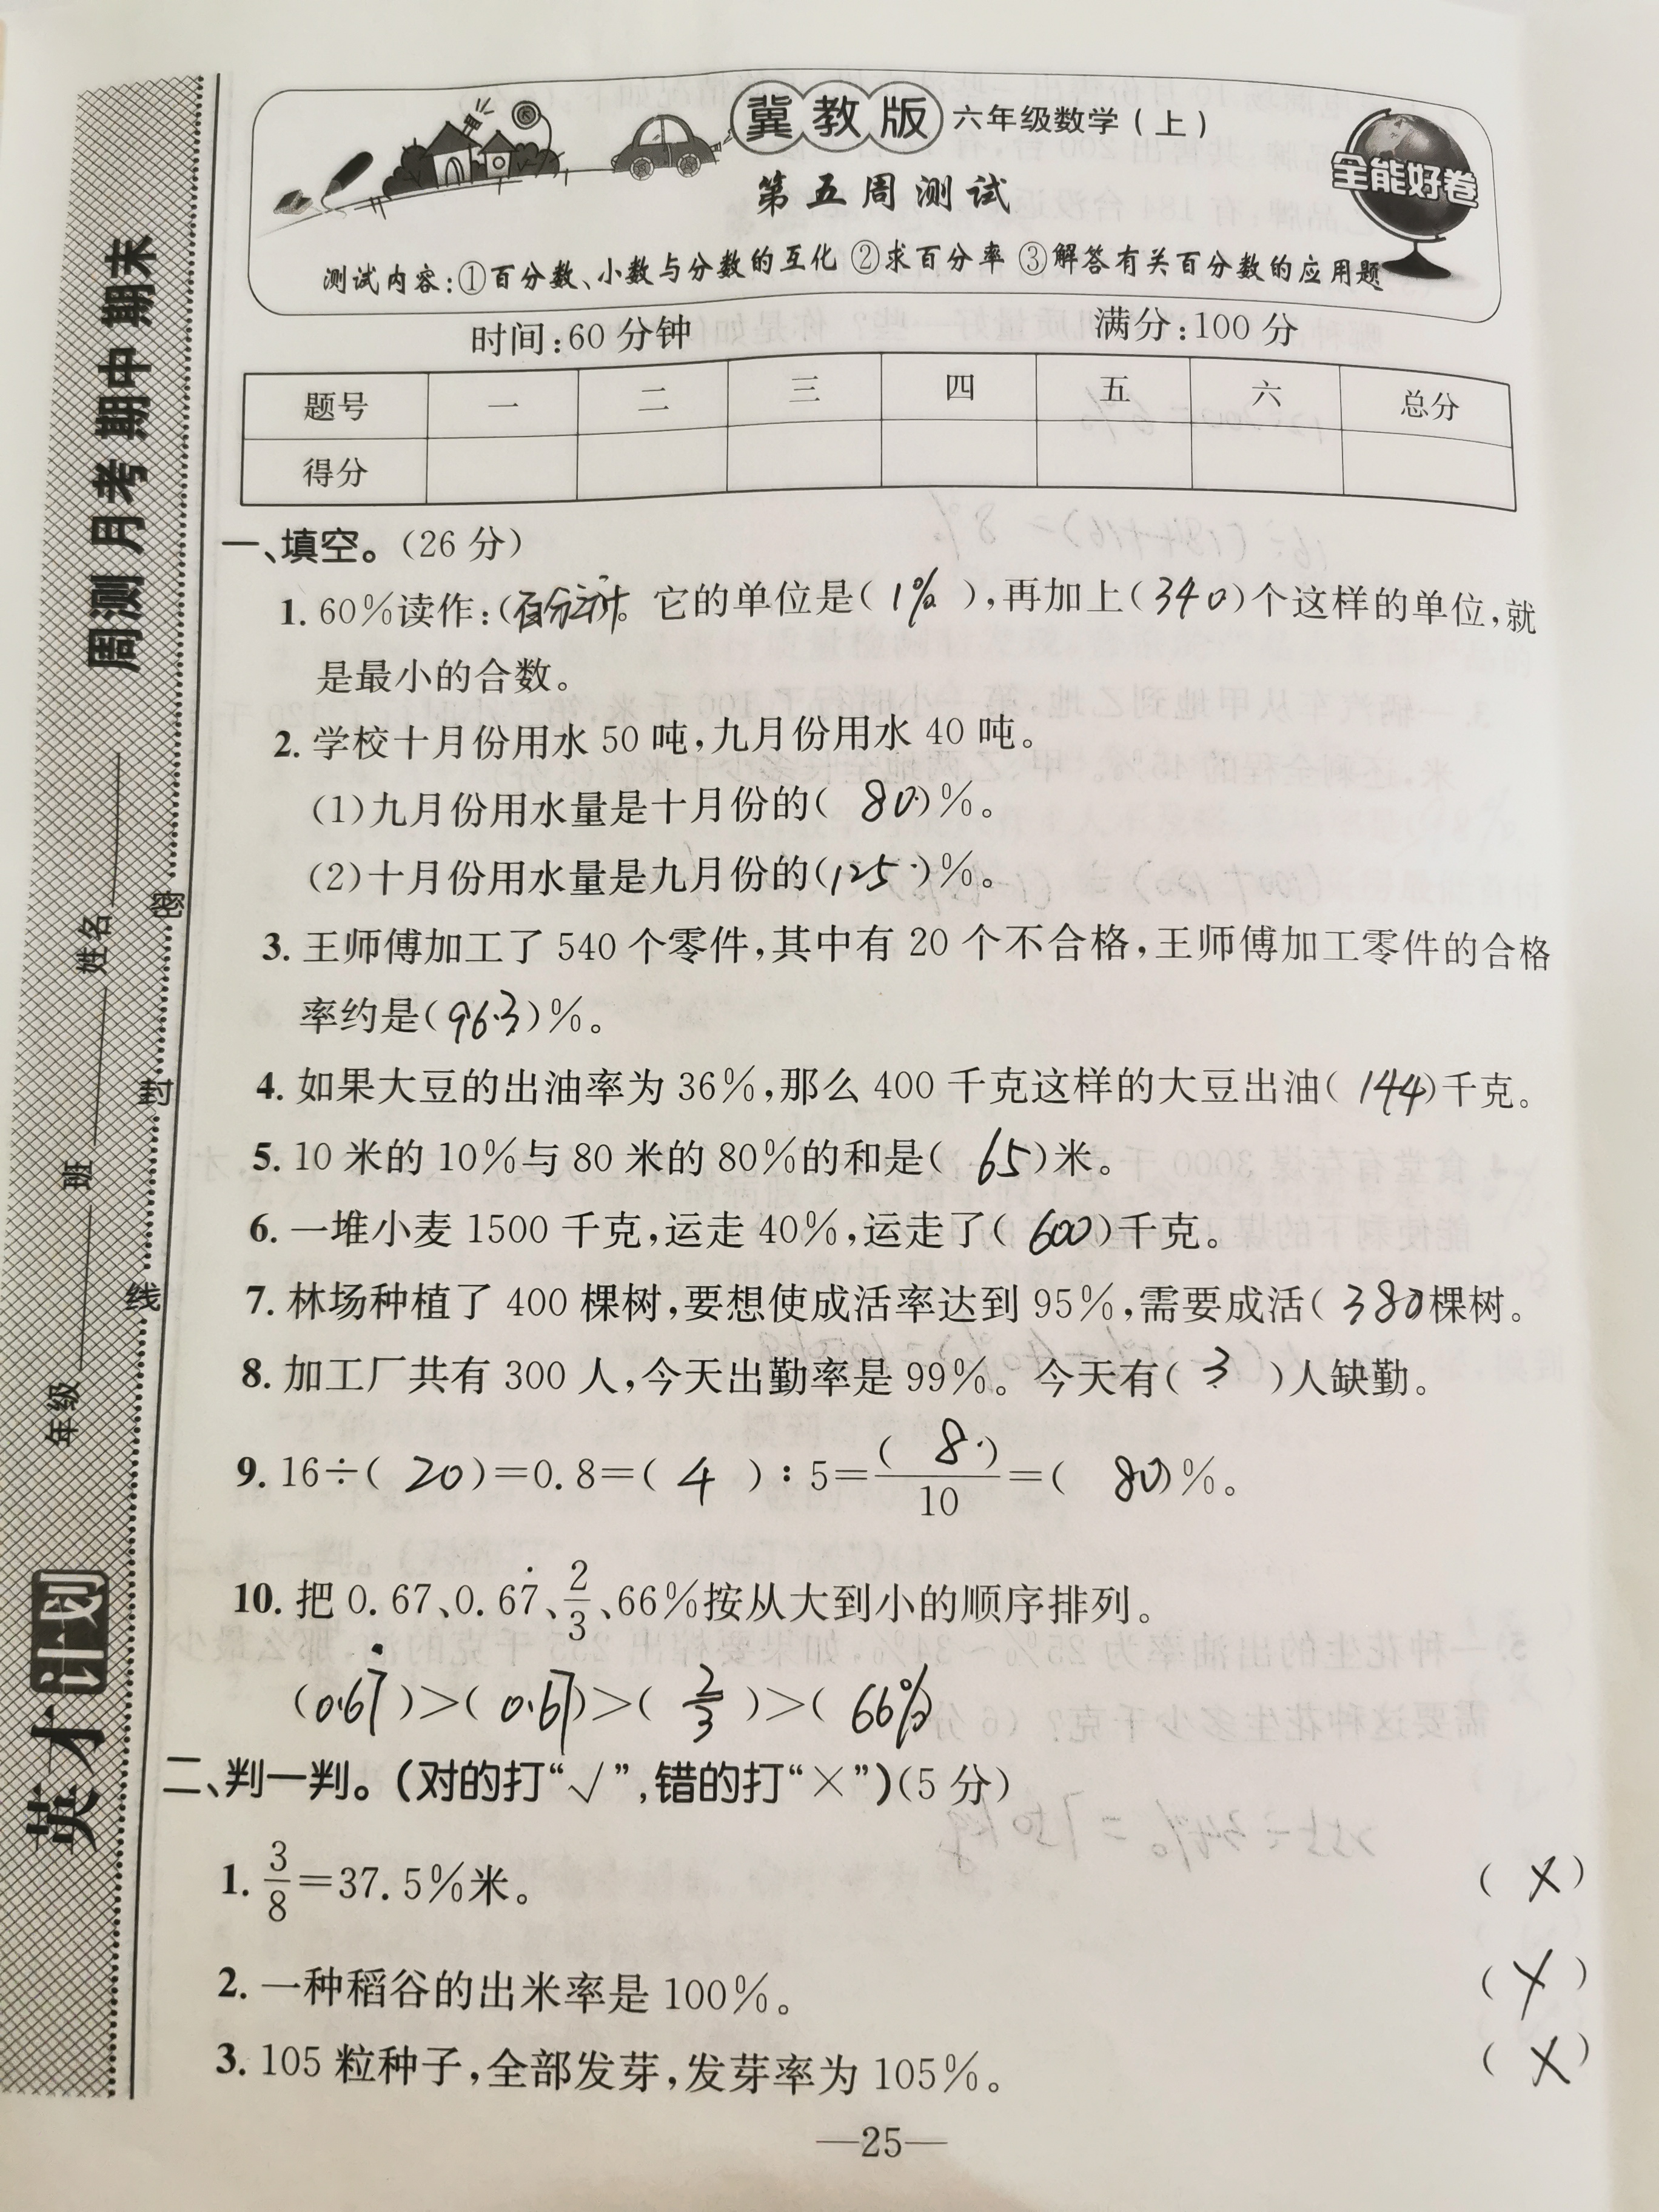 冀教版 六年级数学(上)
全能好卷
第五周测试
测试内容:①百分数、小数与分数的互化 ②求百分率 ③解答有关百分数的应用题
时间:60分钟 满分:100分
题号 一 二 三 四 五 六 总分
得分
一、填空。(26分)
1. 60%读作:(百分之六十。 它的单位是(1%),再加上(340)个这样的单位,就
是最小的合数。
2. 学校十月份用水50吨,九月份用水40吨。
(1)九月份用水量是十月份的(80)%。
(2)十月份用水量是九月份的(125)%。
3. 王师傅加工了540个零件,其中有20个不合格,王师傅加工零件的合格
率约是(96.3)%。
4. 如果大豆的出油率为36%,那么400千克这样的大豆出油(144)千克。
5. 10米的10%与80米的80%的和是(65)米。
6. 一堆小麦1500千克,运走40%,运走了(600)千克。
7. 林场种植了400棵树,要想使成活率达到95%,需要成活(380棵树。
8. 加工厂共有300人,今天出勤率是99%。今天有(3)人缺勤。
9. 16÷(20)=0.8=(4):5=(8)/10=(80)%。
10. 把0.67、0.67̇、2/3、66%按从大到小的顺序排列。
(0.67̇)>(0.67)>(2/3)>(66%)
二、判一判。(对的打“√”,错的打“×”)(5分)
1. 3/8=37.5%米。 (×)
2. 一种稻谷的出米率是100%。 (×)
3. 105粒种子,全部发芽,发芽率为105%。 (×)
—25—
周测 月考 期中 期末
年级 班 姓名
密 封 线
英才计划